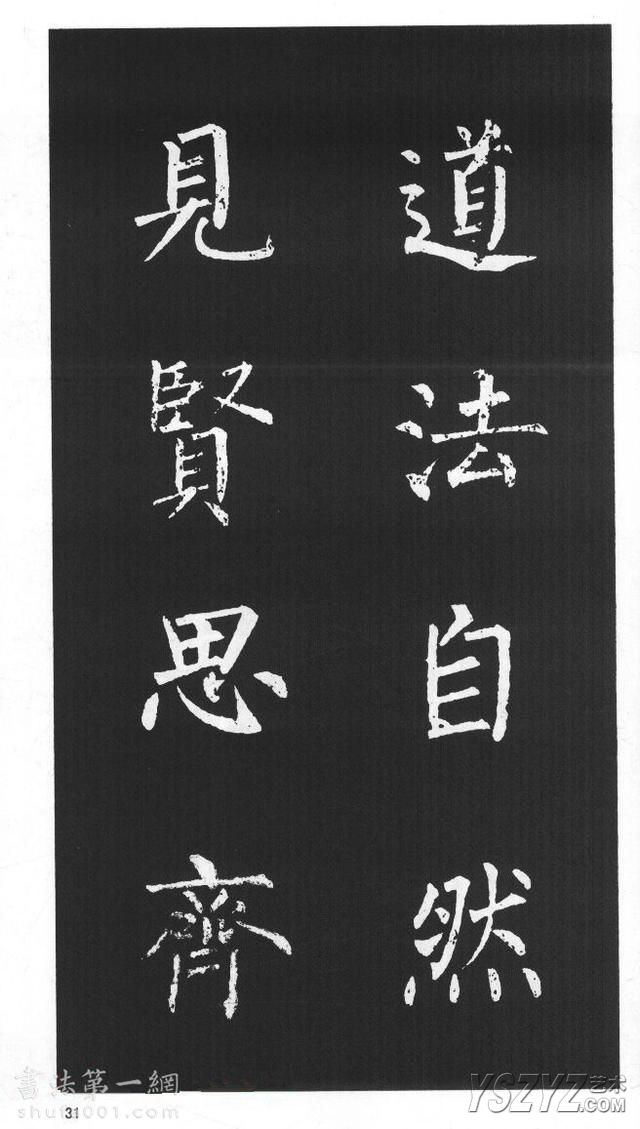 道法自然
見賢思齊
書法第一網
shufa001.com
31
YSZYZ艺术
.COM